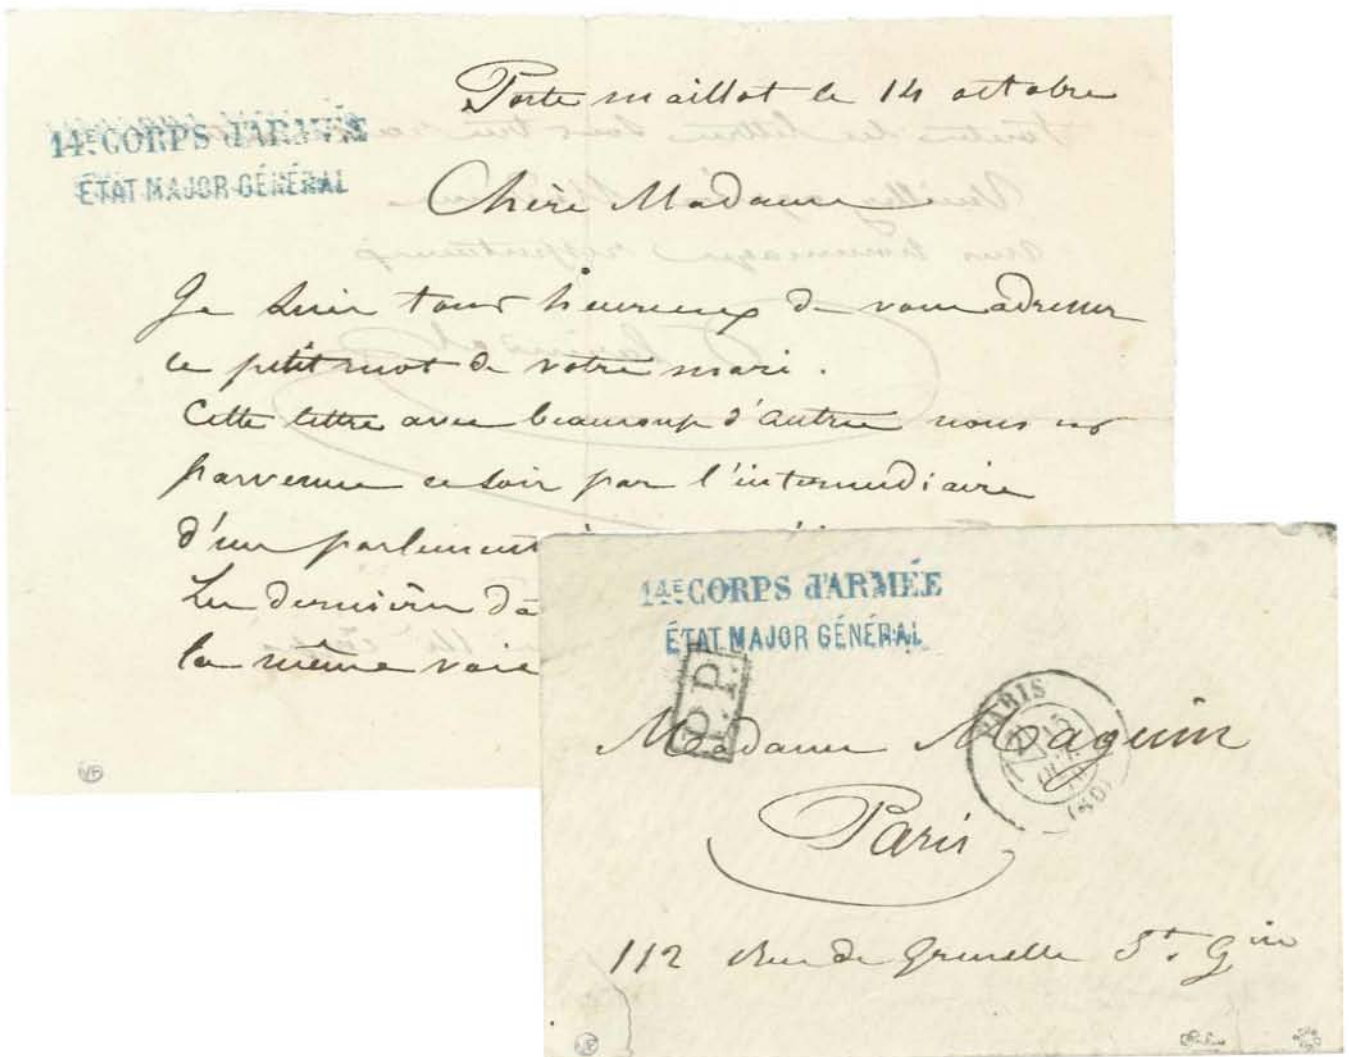 Porte maillot le 14 octobre
14E CORPS d'ARMÉE
ÉTAT MAJOR GÉNÉRAL
Chère Madame
Je suis tout heureux de vous adresser
ce petit mot de votre mari.
Cette lettre avec beaucoup d'autres nous est
parvenue ce soir par l'intermédiaire
d'un parlement
Les dernières da
la même voie
14E CORPS d'ARMÉE
ÉTAT MAJOR GÉNÉRAL
P.P.
PARIS
15
OCT.
70
(60)
Madame Maguin
Paris
112 Rue de Grenelle St. Gin